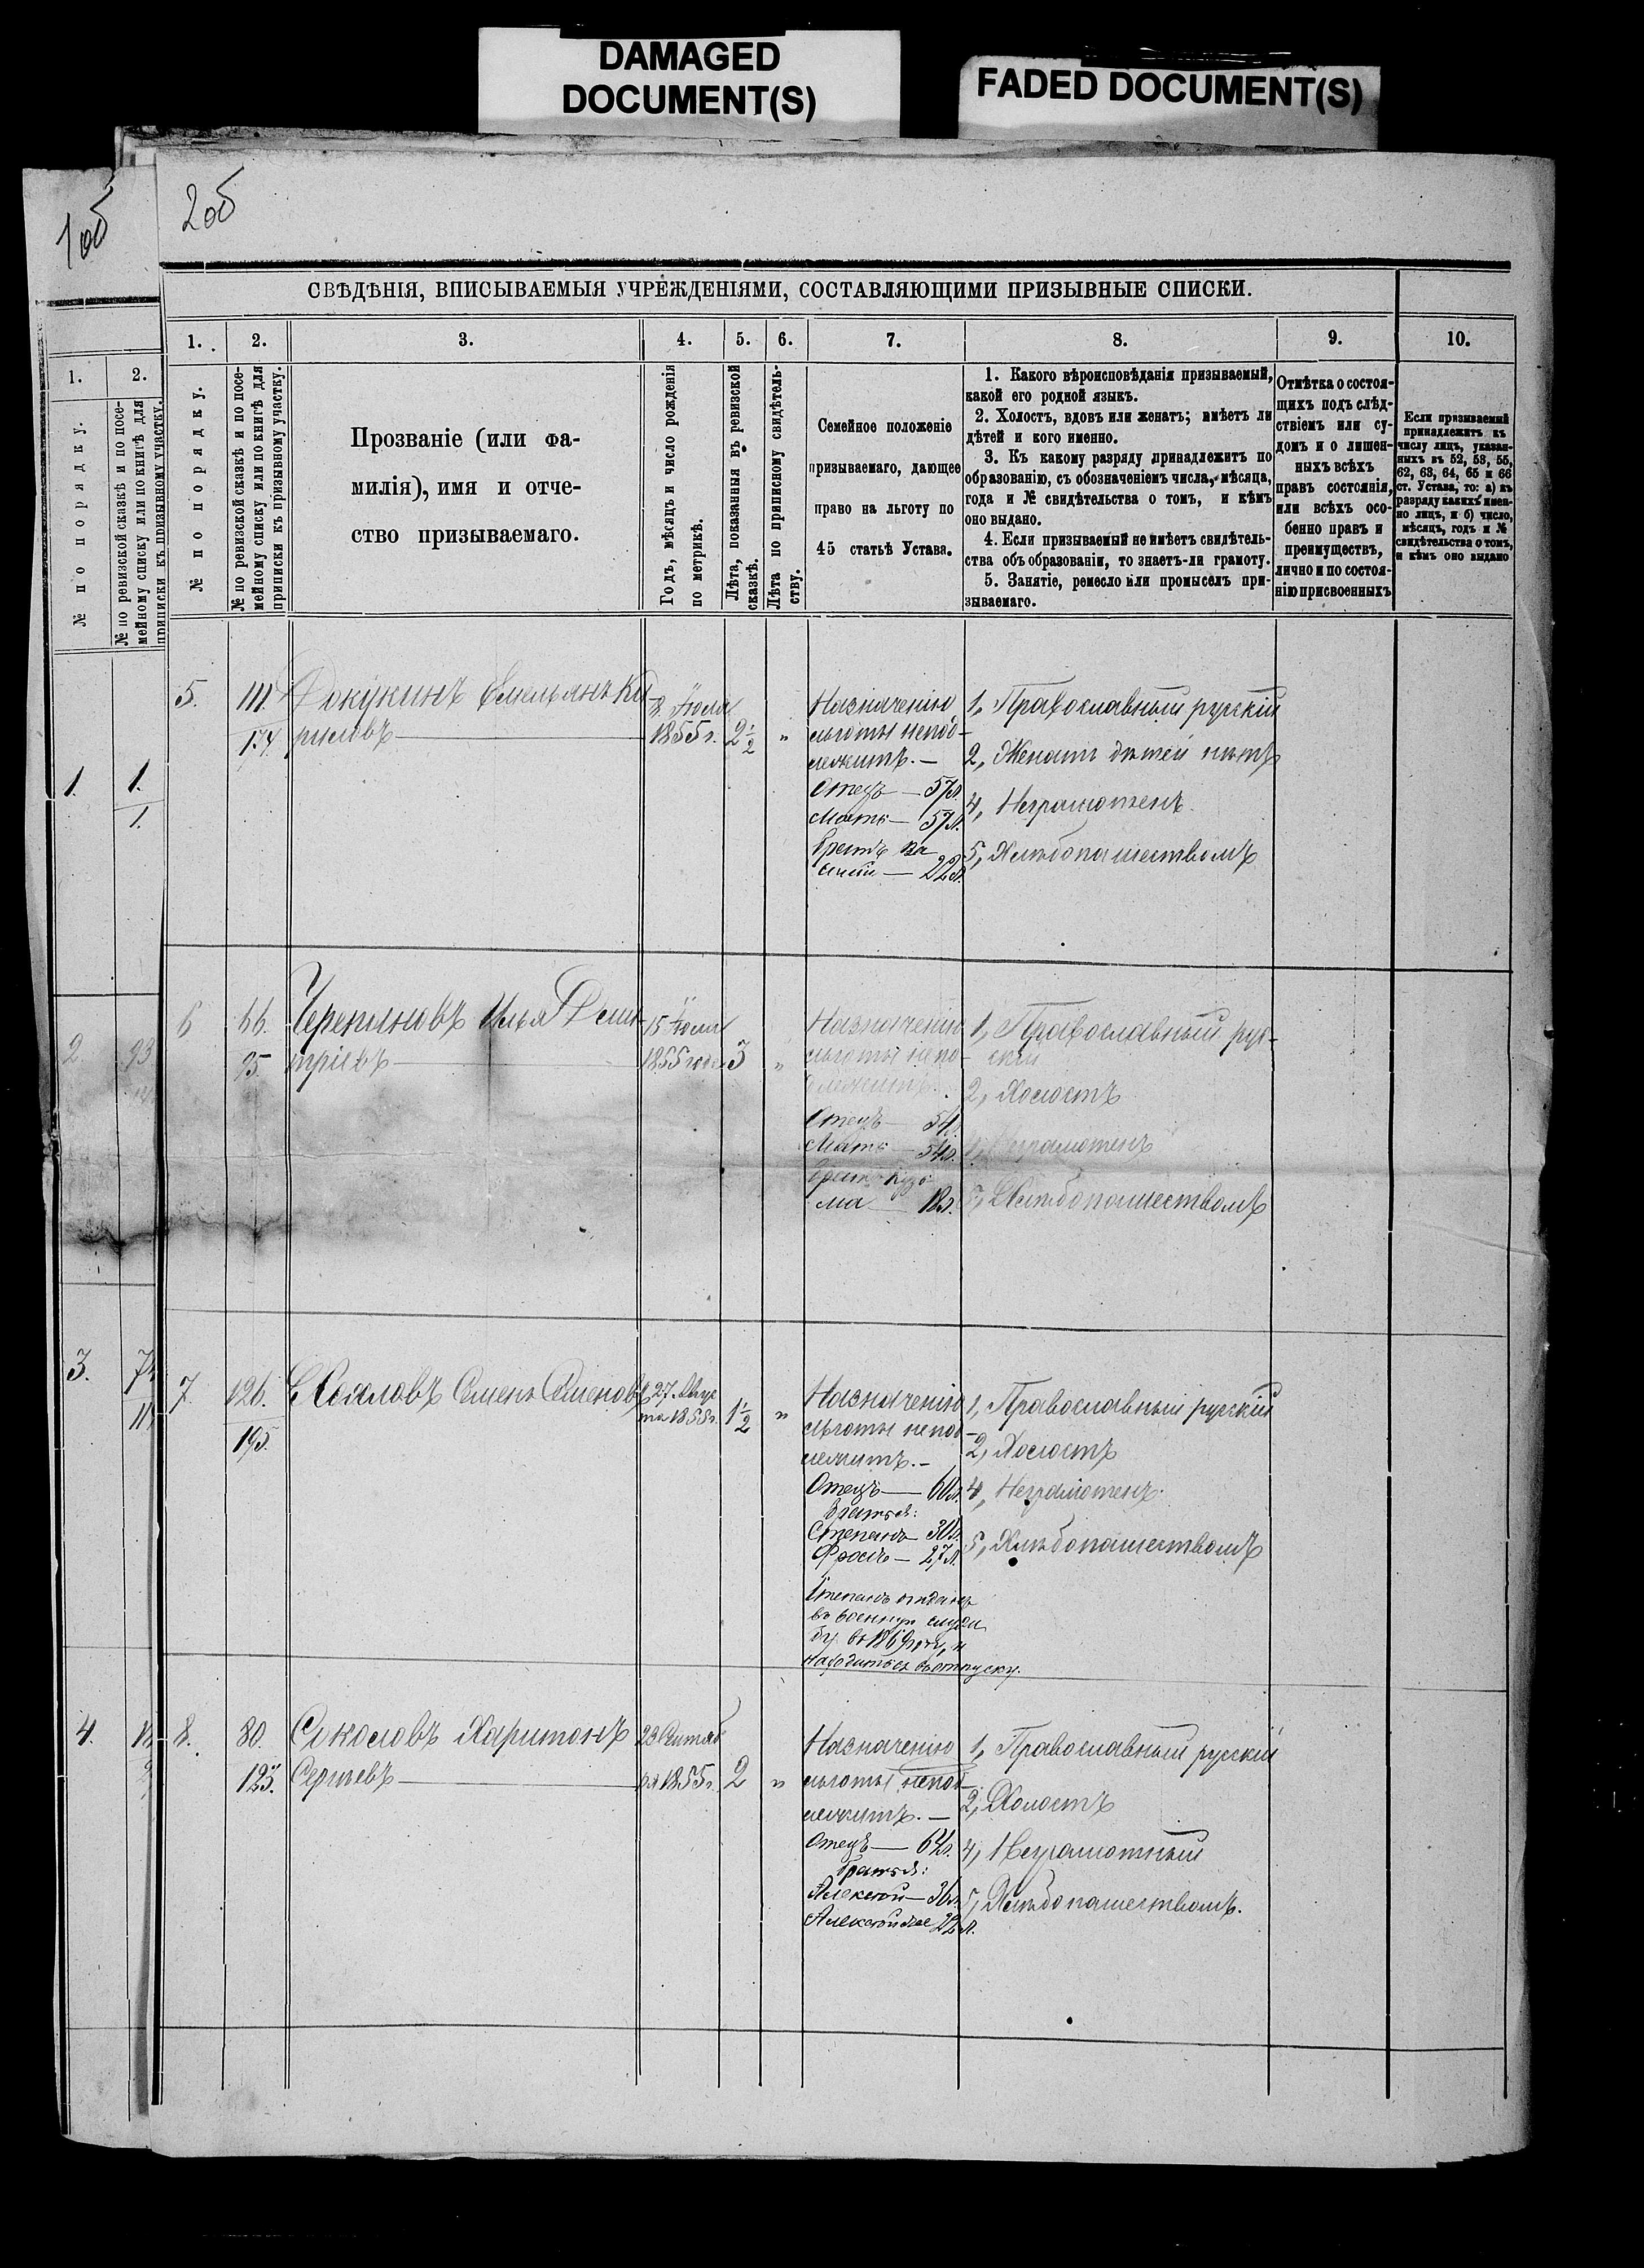 DAMAGED
DOCUMENT(S)
FADED DOCUMENT(S)
1об
2об
СВѢДѢНІЯ, ВПИСЫВАЕМЫЯ УЧРЕЖДЕНІЯМИ, СОСТАВЛЯЮЩИМИ ПРИЗЫВНЫЕ СПИСКИ.
1. 2.
№ по порядку.
№ по ревизской сказкѣ и по посе-
мейному списку или по книгѣ для
приписки къ призывному участку.
1. 1.
1.
2. 93
3.
4.
1. 2. 3. 4. 5. 6. 7. 8. 9. 10.
№ по порядку.
№ по ревизской сказкѣ и по посе-
мейному списку или по книгѣ для
приписки къ призывному участку.
Прозваніе (или фа-
милія), имя и отче-
ство призываемаго.
Годъ, мѣсяцъ и число рожденія
по метрикѣ.
Лѣта, показанныя въ ревизской
сказкѣ.
Лѣта по приписному свидѣтель-
ству.
Семейное положеніе
призываемаго, дающее
право на льготу по
45 статьѣ Устава.
1. Какого вѣроисповѣданія призываемый,
какой его родной языкъ.
2. Холостъ, вдовъ или женатъ; имѣетъ ли
дѣтей и кого именно.
3. Къ какому разряду принадлежитъ по
образованію, съ обозначеніемъ числа, мѣсяца,
года и № свидѣтельства о томъ, и кѣмъ
оно выдано.
4. Если призываемый не имѣетъ свидѣтель-
ства объ образованіи, то знаетъ-ли грамоту.
5. Занятіе, ремесло или промыселъ при-
зываемаго.
Отмѣтка о состоя-
щихъ подъ слѣд-
ствіемъ или су-
домъ и о лишен-
ныхъ всѣхъ
правъ состоянія,
или всѣхъ осо-
бенно правъ и
преимуществъ,
лично и по состоя-
нію присвоенныхъ
Если призываемый
принадлежитъ къ
числу лицъ, указан-
ныхъ въ 52, 53, 55,
62, 63, 64, 65 и 66
ст. Устава, то: а) къ
разряду какихъ имен-
но лицъ, и б) число,
мѣсяцъ, годъ и №
свидѣтельства о томъ,
и кѣмъ оно выдано
5.
111
174.
Докукинъ Емельянъ Ки-
риловъ
Іюля
1855 г.
2 1/2
"
Назначенію
льготы непод-
лежитъ. —
Отецъ — 57 л.
Мать — 57 л.
братъ Ва
силій — 22 л.
1, Православный русскій
2, Женатъ дѣтей нѣтъ
4, Неграмотенъ.
5, Хлѣбопашествомъ
6
66.
95.
Черепановъ Илья Дми-
тріевъ
15 Іюля
1855 года
3
"
Назначенію
льготы непо-
длежитъ.
Отецъ — 54 л.
Мать — 54 л.
братъ Кузь
ма — 18 л.
1, Православный рус-
скій
2, Холостъ
4, Неграмотенъ
5, Хлѣбопашествомъ
7.
126.
195.
Семенъ Семеновъ
27. Авгус
та 1855 г.
1 1/2
"
Назначенію
льготы непод-
лежитъ. —
Отецъ — 60 л.
Братья:
Степанъ — 30 л.
Фролъ — 27 л.
Степанъ отданъ
въ военную служ
бу въ 1869 году, и
находиться въ отпуску.
1, Православный русскій
2, Холостъ
4, Неграмотенъ.
5, Хлѣбопашествомъ
8.
80.
125.
Соколовъ Харитонъ
Сергѣевъ
23 Сентяб
ря 1855 г.
2
"
Назначенію
льготы непод-
лежитъ. —
Отецъ — 64 л.
Братья:
Алексѣй — 36 л.
Алексѣй же 22 л.
1, Православный русскій
2, Холостъ
4, Неграмотный
5, Хлѣбопашествомъ.